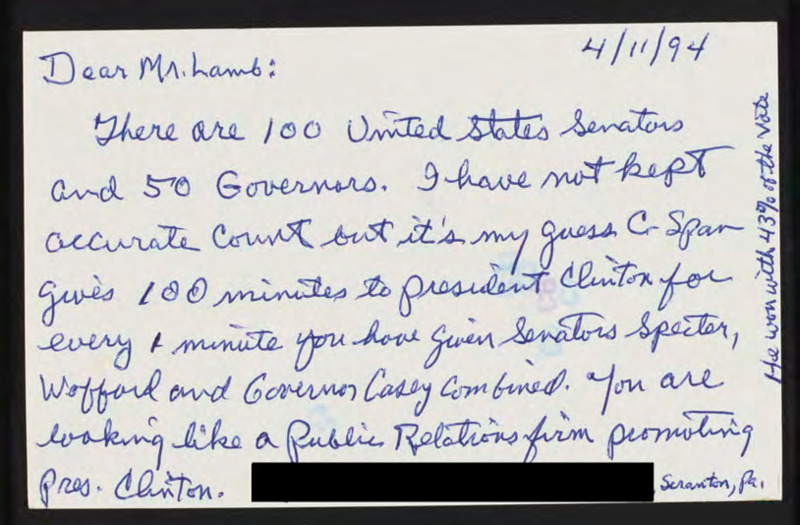 4/11/94
Dear Mr. Lamb:
There are 100 United States Senators
and 50 Governors. I have not kept
accurate count but it's my guess C-Span
gives 100 minutes to president Clinton for
every 1 minute you have given Senators Specter,
Wofford and Governor Casey combined. You are
looking like a Public Relations firm promoting
Pres. Clinton.
Scranton, Pa.
He won with 43% of the vote